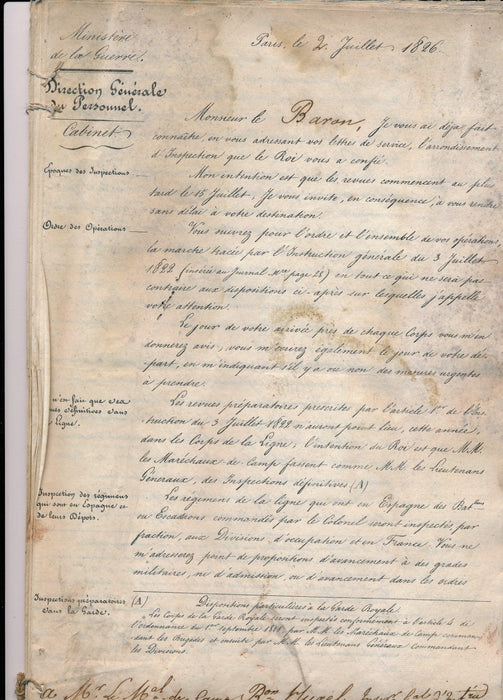 Ministère
de la Guerre.
Paris, le 2 Juillet 1826.
Direction Générale
du Personnel.
Cabinet
Monsieur le Baron, Je vous ai déja fait
connaître, en vous adressant vos lettres de service, l'arrondissement
d'Inspection que le Roi vous a confié.
Epoques des Inspections
Mon intention est que les revues commencent au plus
tard le 15 Juillet. Je vous invite, en conséquence, à vous rendre
sans délai à votre destination.
Ordre des Opérations
Vous suivrez pour l'ordre et l'ensemble de vos opérations,
la marche tracée par l'Instruction générale du 3 Juillet
1822 (insérée au Journal page 25) en tout ce qui ne sera pas
contraire aux dispositions ci-après sur lesquelles j'appelle
votre attention.
Le jour de votre arrivée près de chaque Corps vous m'en
donnerez avis, vous m'écrirez également le jour de votre dé-
part, en m'indiquant s'il y a ou non des mesures urgentes
à prendre.
n'en fait que des
définitives dans
Ligne.
Les revues préparatoires prescrites par l'article 1er de l'Ins-
truction du 3 Juillet 1822 n'auront point lieu, cette année,
dans les Corps de la Ligne; l'intention du Roi est que M.M.
les Maréchaux de Camp fassent comme M.M. les Lieutenans
Généraux, des Inspections définitives (A)
Inspection des régimens
qui sont en Espagne et
de leurs Dépots.
Les régimens de la ligne qui ont en Espagne des Bat.ons
ou Escadrons commandés par le Colonel seront inspectés, par
fraction, aux Divisions d'occupation et en France. Vous ne
m'adresserez point de propositions d'avancement à des grades
militaires, ni d'admission, ou d'avancement dans les ordres
Inspections préparatoires
dans la Garde.
(A) Dispositions particulières à la Garde Royale.
Les Corps de la Garde Royale seront inspectés conformément à l'article 6 de
l'ordonnance du 1er septembre par M.M. les Maréchaux de Camp comman-
dant les Brigades et ensuite par M.M. les Lieutenans Généraux commandant
les Divisions.
A Mr. le Mal de Camp Bon